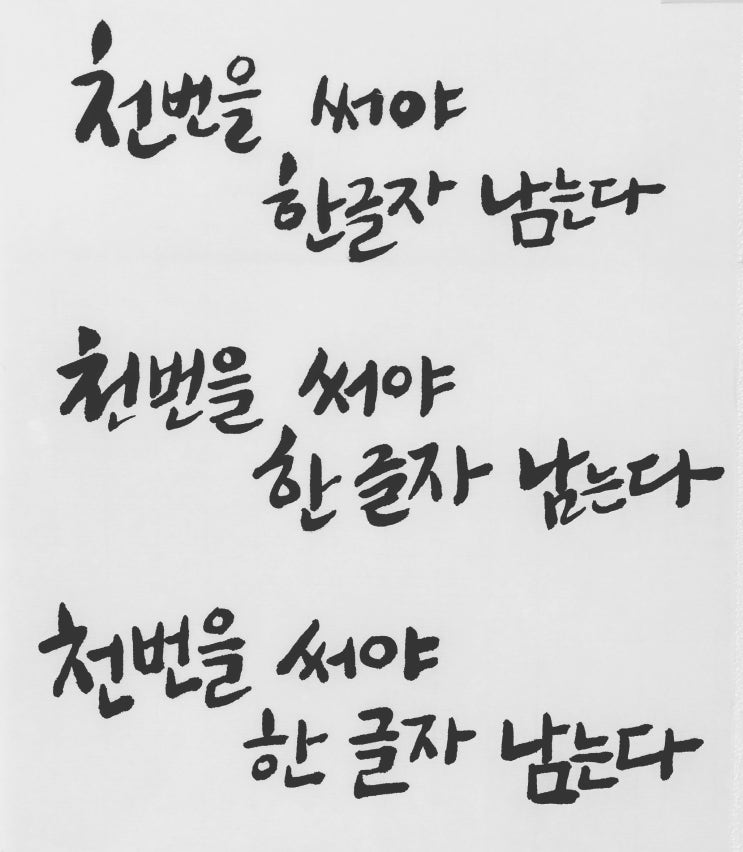 천번을 써야
한글자 남는다
천번을 써야
한 글자 남는다
천번을 써야
한 글자 남는다